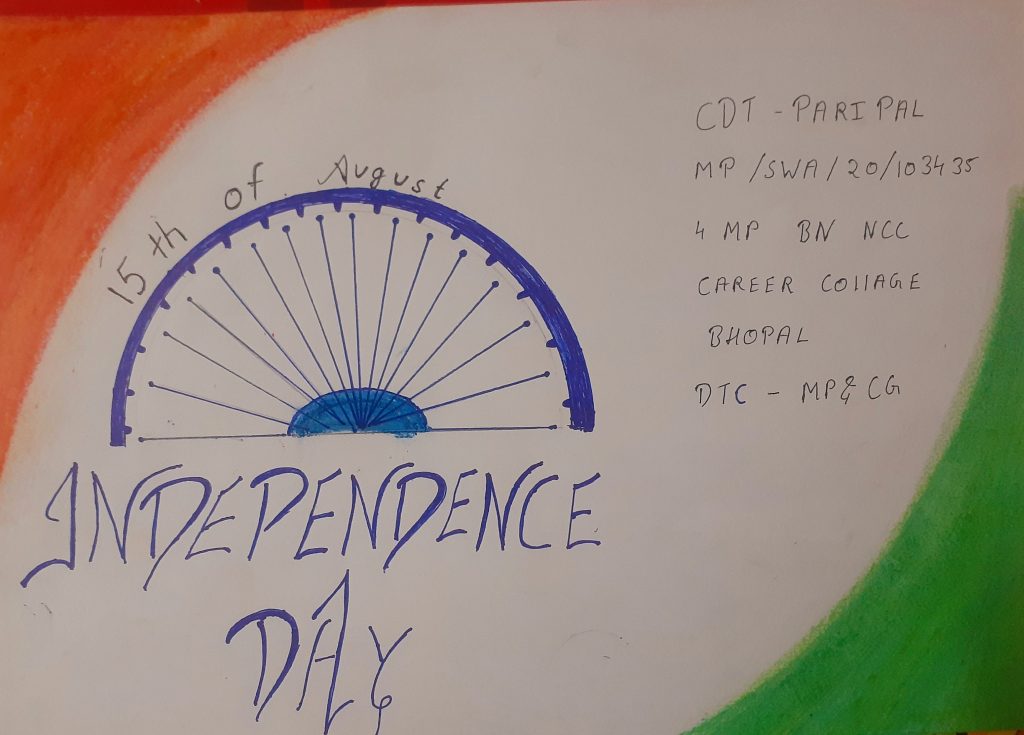 15 th of August
INDEPENDENCE
DAY
CDT - PARIPAL
MP/SWA/20/103435
4 MP BN NCC
CAREER COllAGE
BHOPAL
DTC - MP& CG